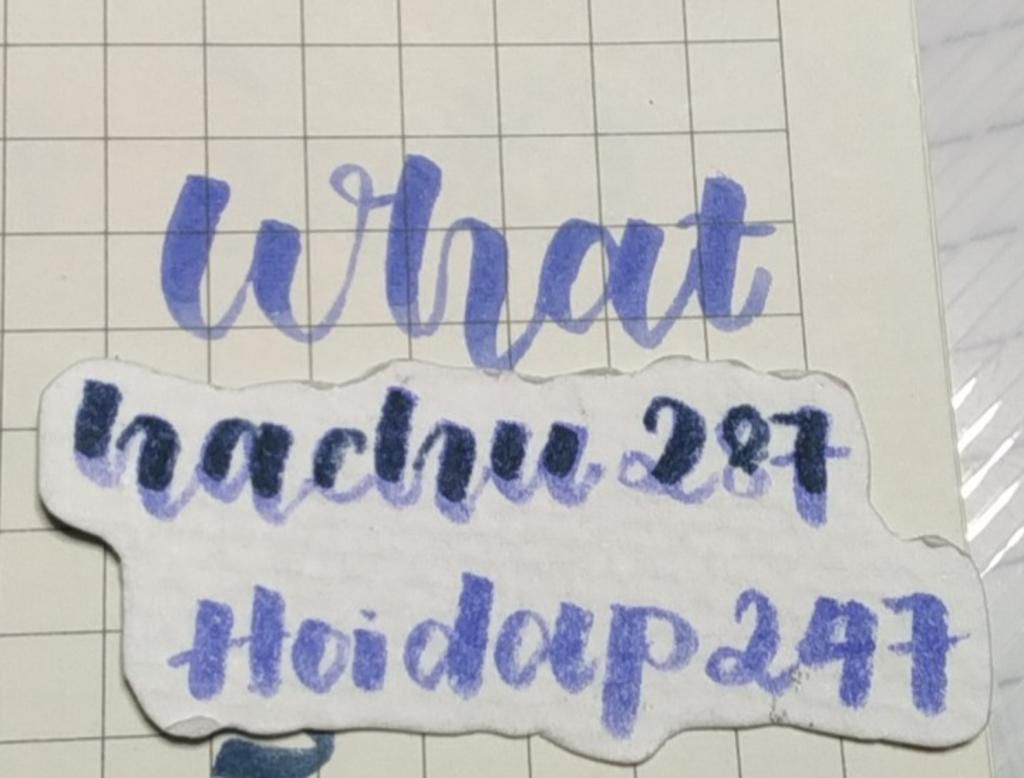 What
hachu 287
Hoidap247